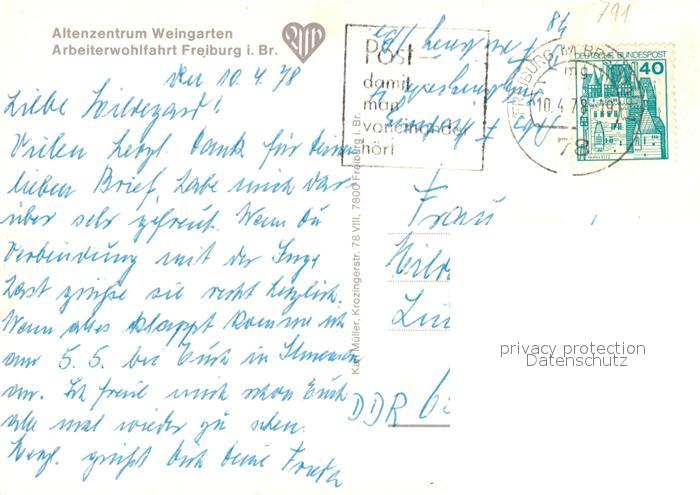 Altenzentrum Weingarten
Arbeiterwohlfahrt Freiburg i. Br.
Den 10.4.78
Liebe Hildegard!
Vielen herzl. Dank für deinen
lieben Brief, habe mich dar
über sehr gefreut. Wenn du
Verbindung mit der Inge
hast grüße sie recht herzlich.
Wenn alles klappt komme ich
am 5.5. bei Euch in Ilmenau
an. Ich freue mich schon Euch
alle mal wieder zu sehen.
Herzl. grüßt Dich Deine Frieda
Karl Müller, Krozingerstr. 78 VIII, 7800 Freiburg i. Br.
84
791
Post
damit
man
voneinander
hört
FREIBURG
mg
10.4.78-19
78
DEUTSCHE BUNDESPOST
40
BURG ELTZ
Frau
DDR 6
privacy protection
Datenschutz